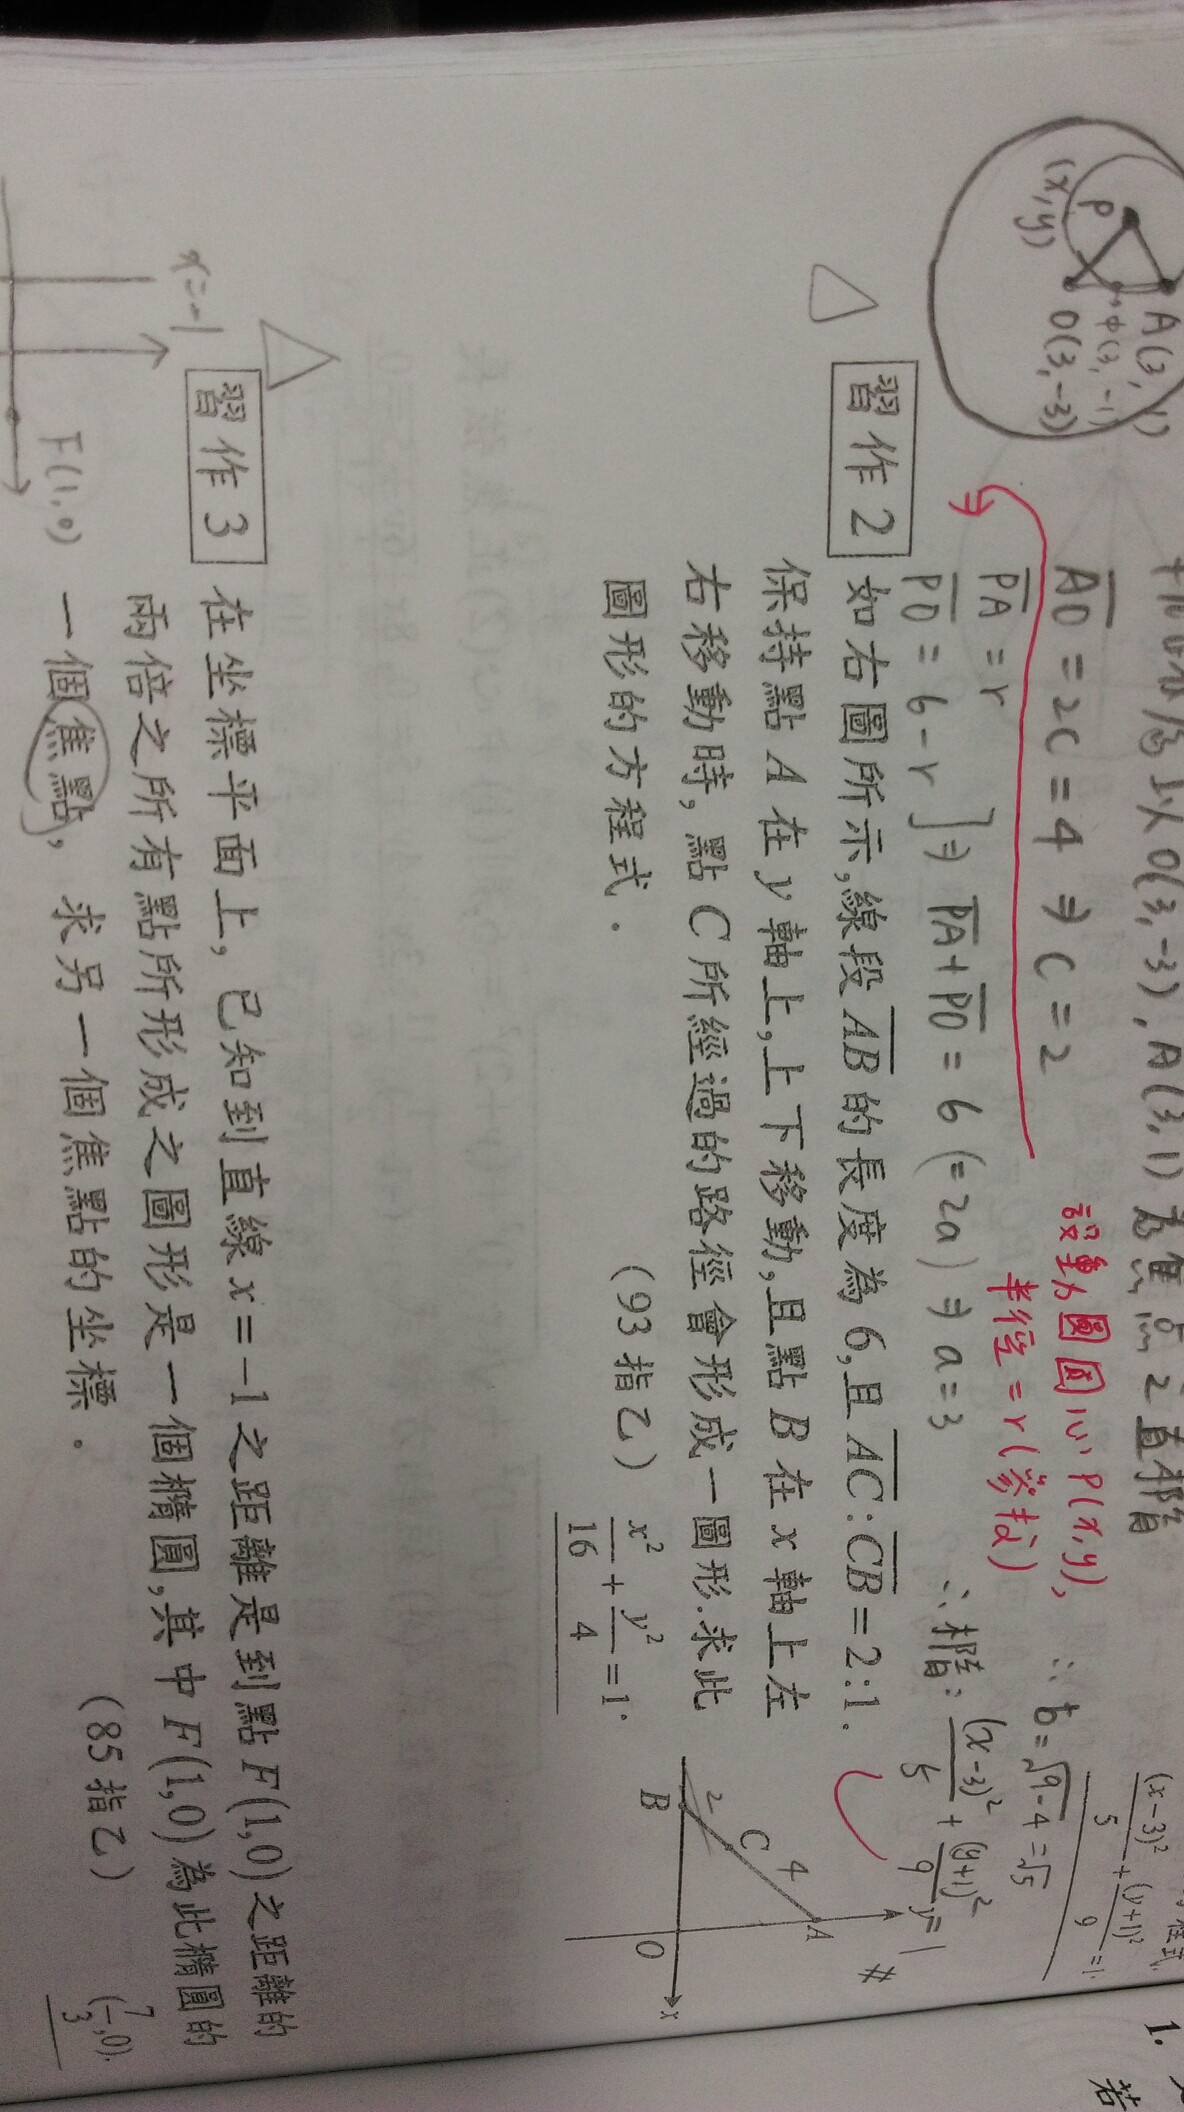 A(3, 1)
中(3, -1)
O(3, -3)
P
(x, y)
以O(3, -3), A(3, 1)為焦點之直橢
AO = 2C = 4 ⇒ C = 2
PA = r
PO = 6 - r ] ⇒ PA + PO = 6 (= 2a) ⇒ a = 3
設動圓圓心P(x, y),
半徑 = r (參故)
∴ b = √9-4 = √5
∴ 橢: (x-3)²/5 + (y+1)²/9 = 1 #
程式.
(x-3)²/5 + (y+1)²/9 = 1.
習作2
如右圖所示,線段AB的長度為6,且AC:CB=2:1.
保持點A在y軸上,上下移動,且點B在x軸上左
右移動時,點C所經過的路徑會形成一圖形.求此
圖形的方程式.
(93指乙)
x²/16 + y²/4 = 1.
y
A
4
C
2
B
O
x
習作3
在坐標平面上,已知到直線x=-1之距離是到點F(1,0)之距離的
兩倍之所有點所形成之圖形是一個橢圓,其中F(1,0)為此橢圓的
一個焦點,求另一個焦點的坐標.
(85指乙)
(7/3,0).
x=-1
F(1,0)
1.
若